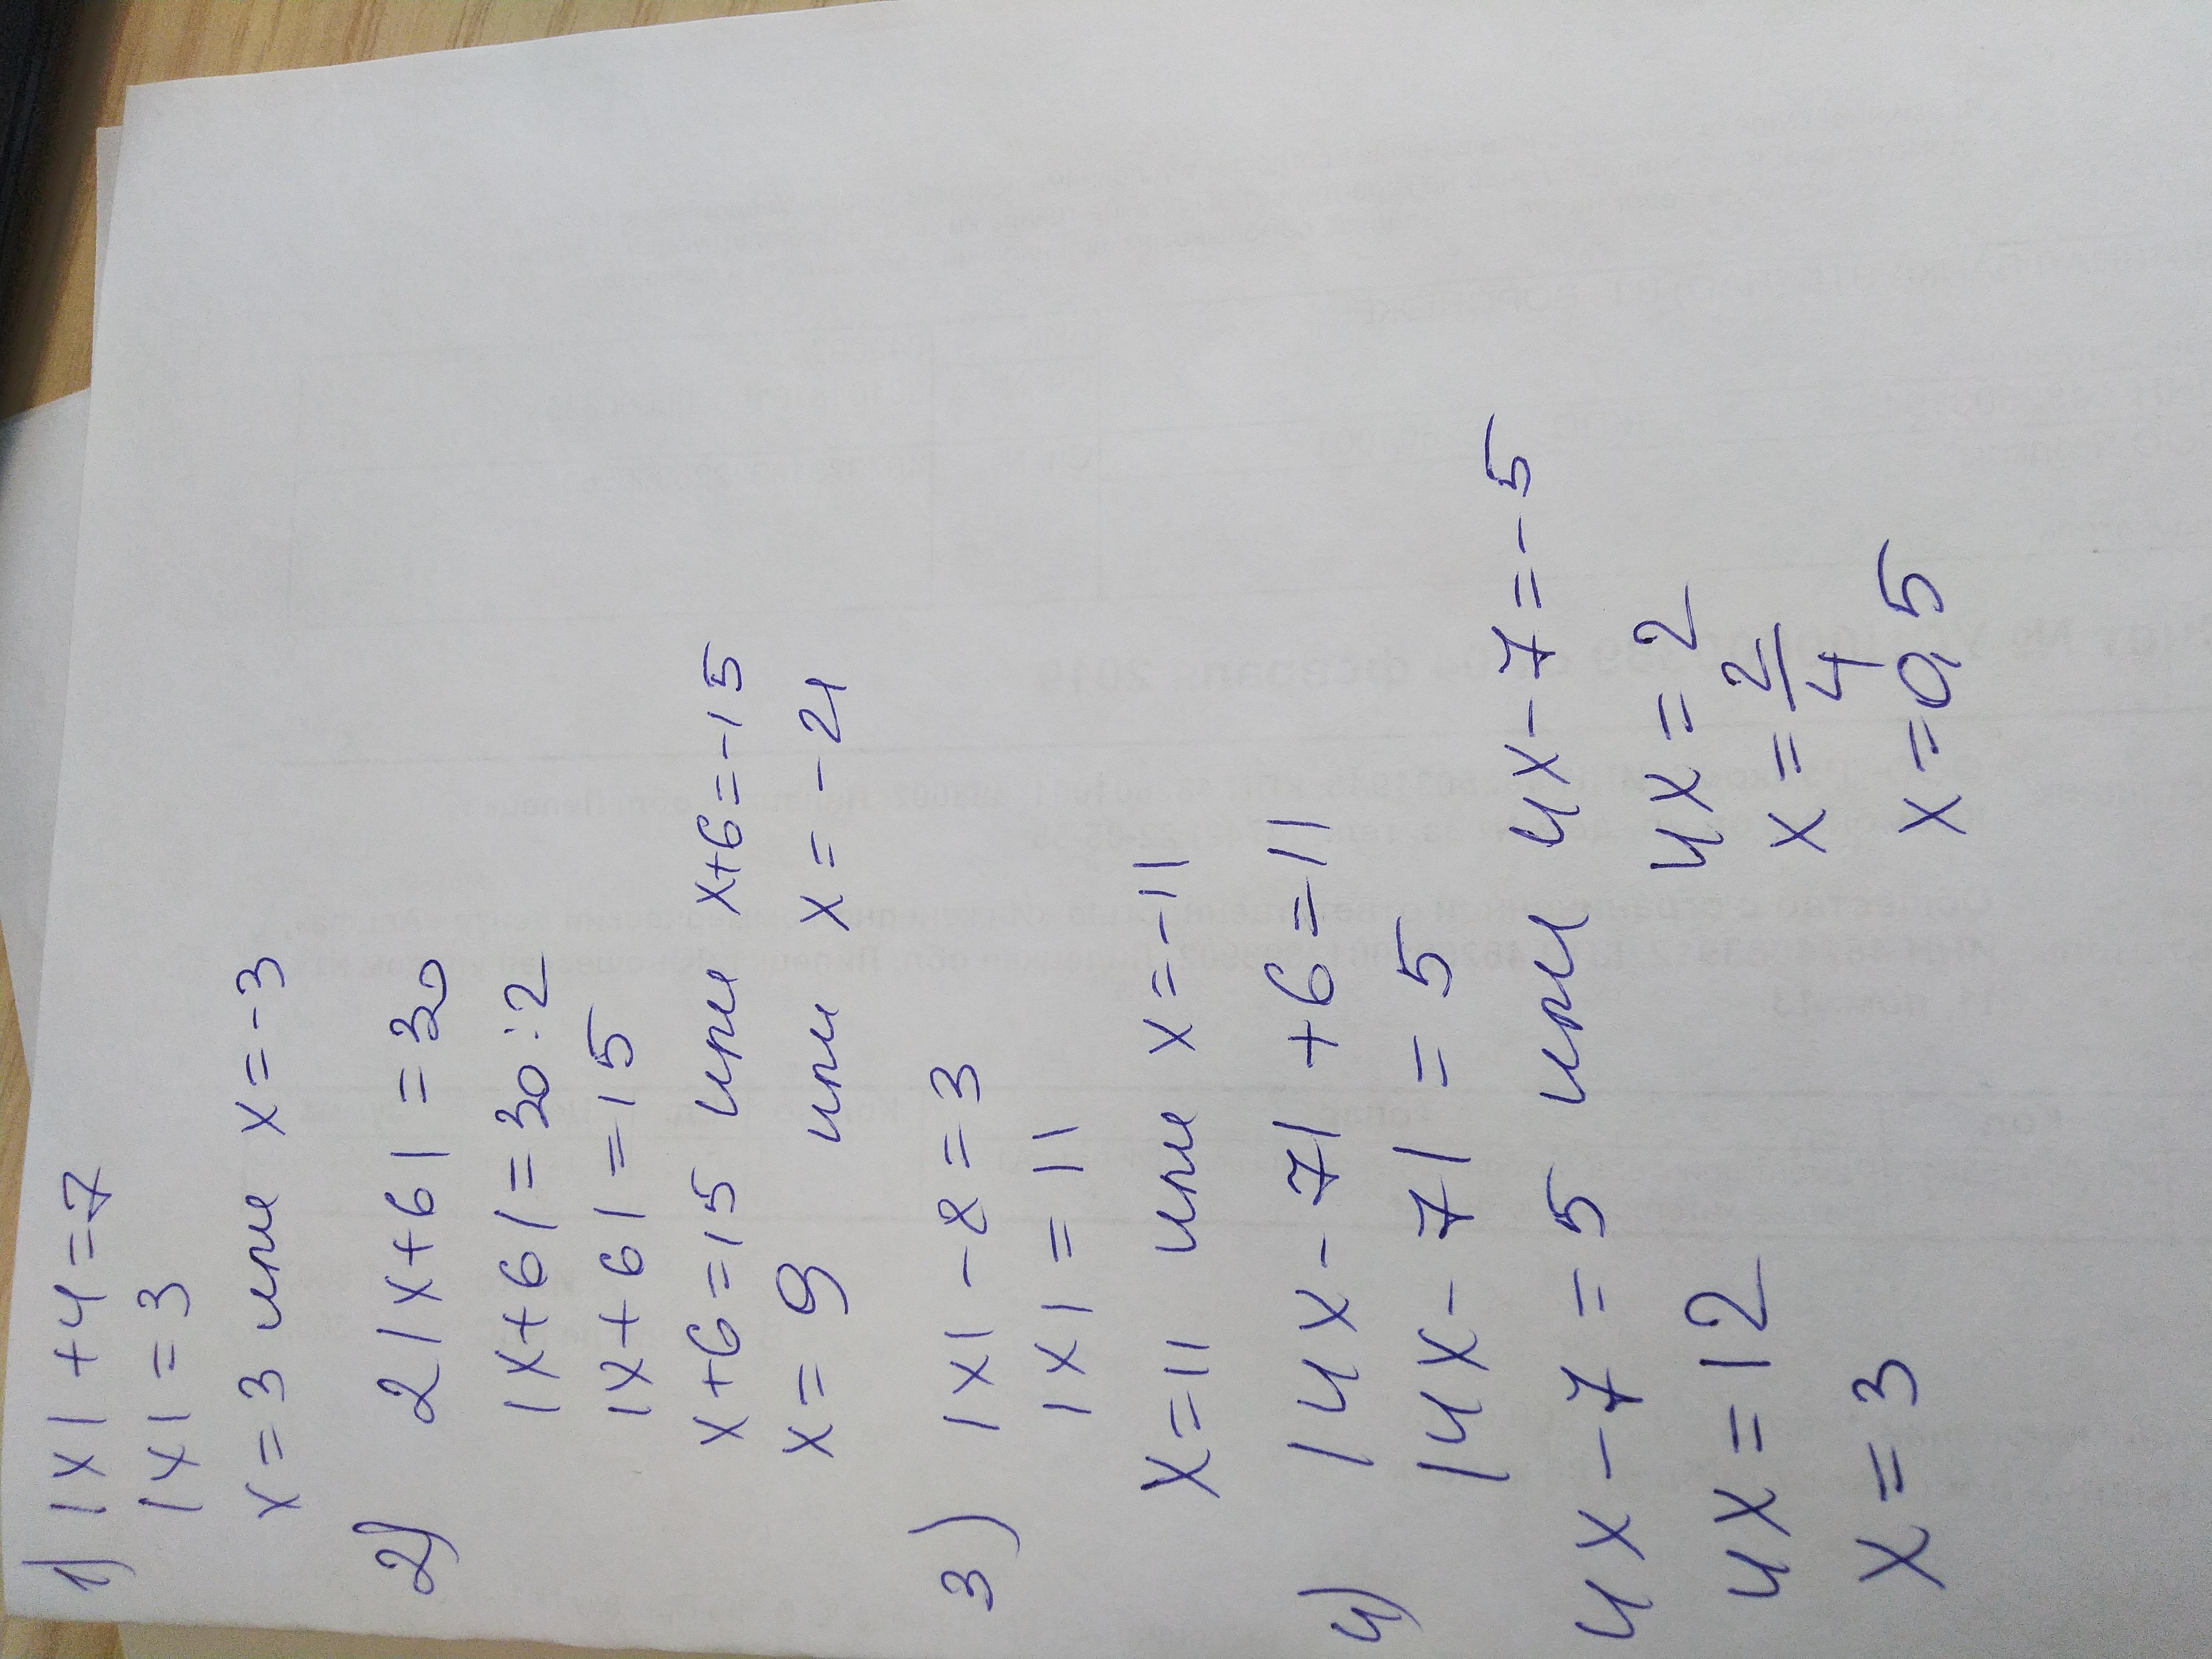 1) |x| + 4 = 7
|x| = 3
x = 3 или x = -3
2) 2|x + 6| = 30
|x + 6| = 30 : 2
|x + 6| = 15
x + 6 = 15 или x + 6 = -15
x = 9 или x = -21
3) |x| - 8 = 3
|x| = 11
x = 11 или x = -11
4) |4x - 7| + 6 = 11
|4x - 7| = 5
4x - 7 = 5 или 4x - 7 = -5
4x = 12 4x = 2
x = 3 x = 2/4
x = 0,5